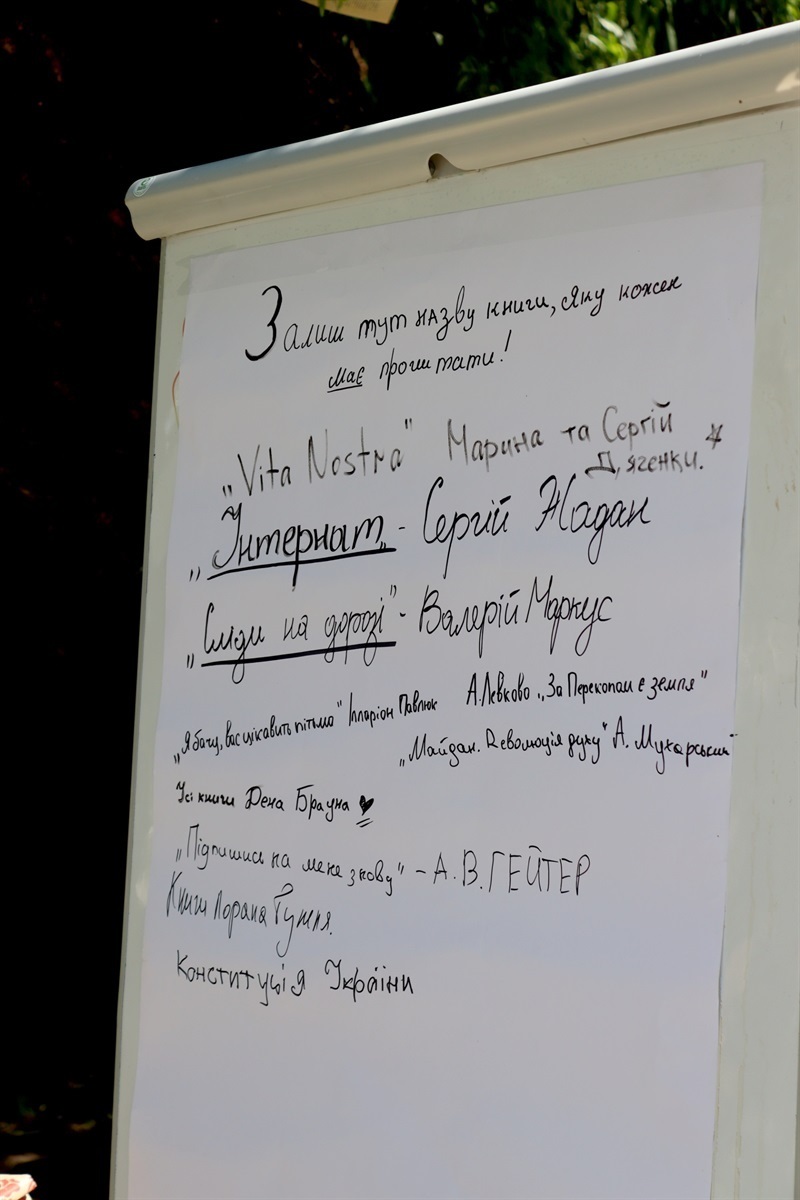 Залиш тут назву книги, яку кожен
має прочитати!
„Vita Nostra" Марина та Сергій
Дяченки.
„Інтернат„ - Сергій Жадан
„Сліди на дорозі" - Валерій Маркус
„Я бачу, вас цікавить пітьма" Ілларіон Павлюк А.Левкова „За Перекопом є земля"
„Майдан. Революція духу" А. Мухарський
Усі книги Дена Брауна
„Підпишись на мене знову" - А.В.ГЕЙТЕР
Книги Лорана Гунеля.
Конституція України